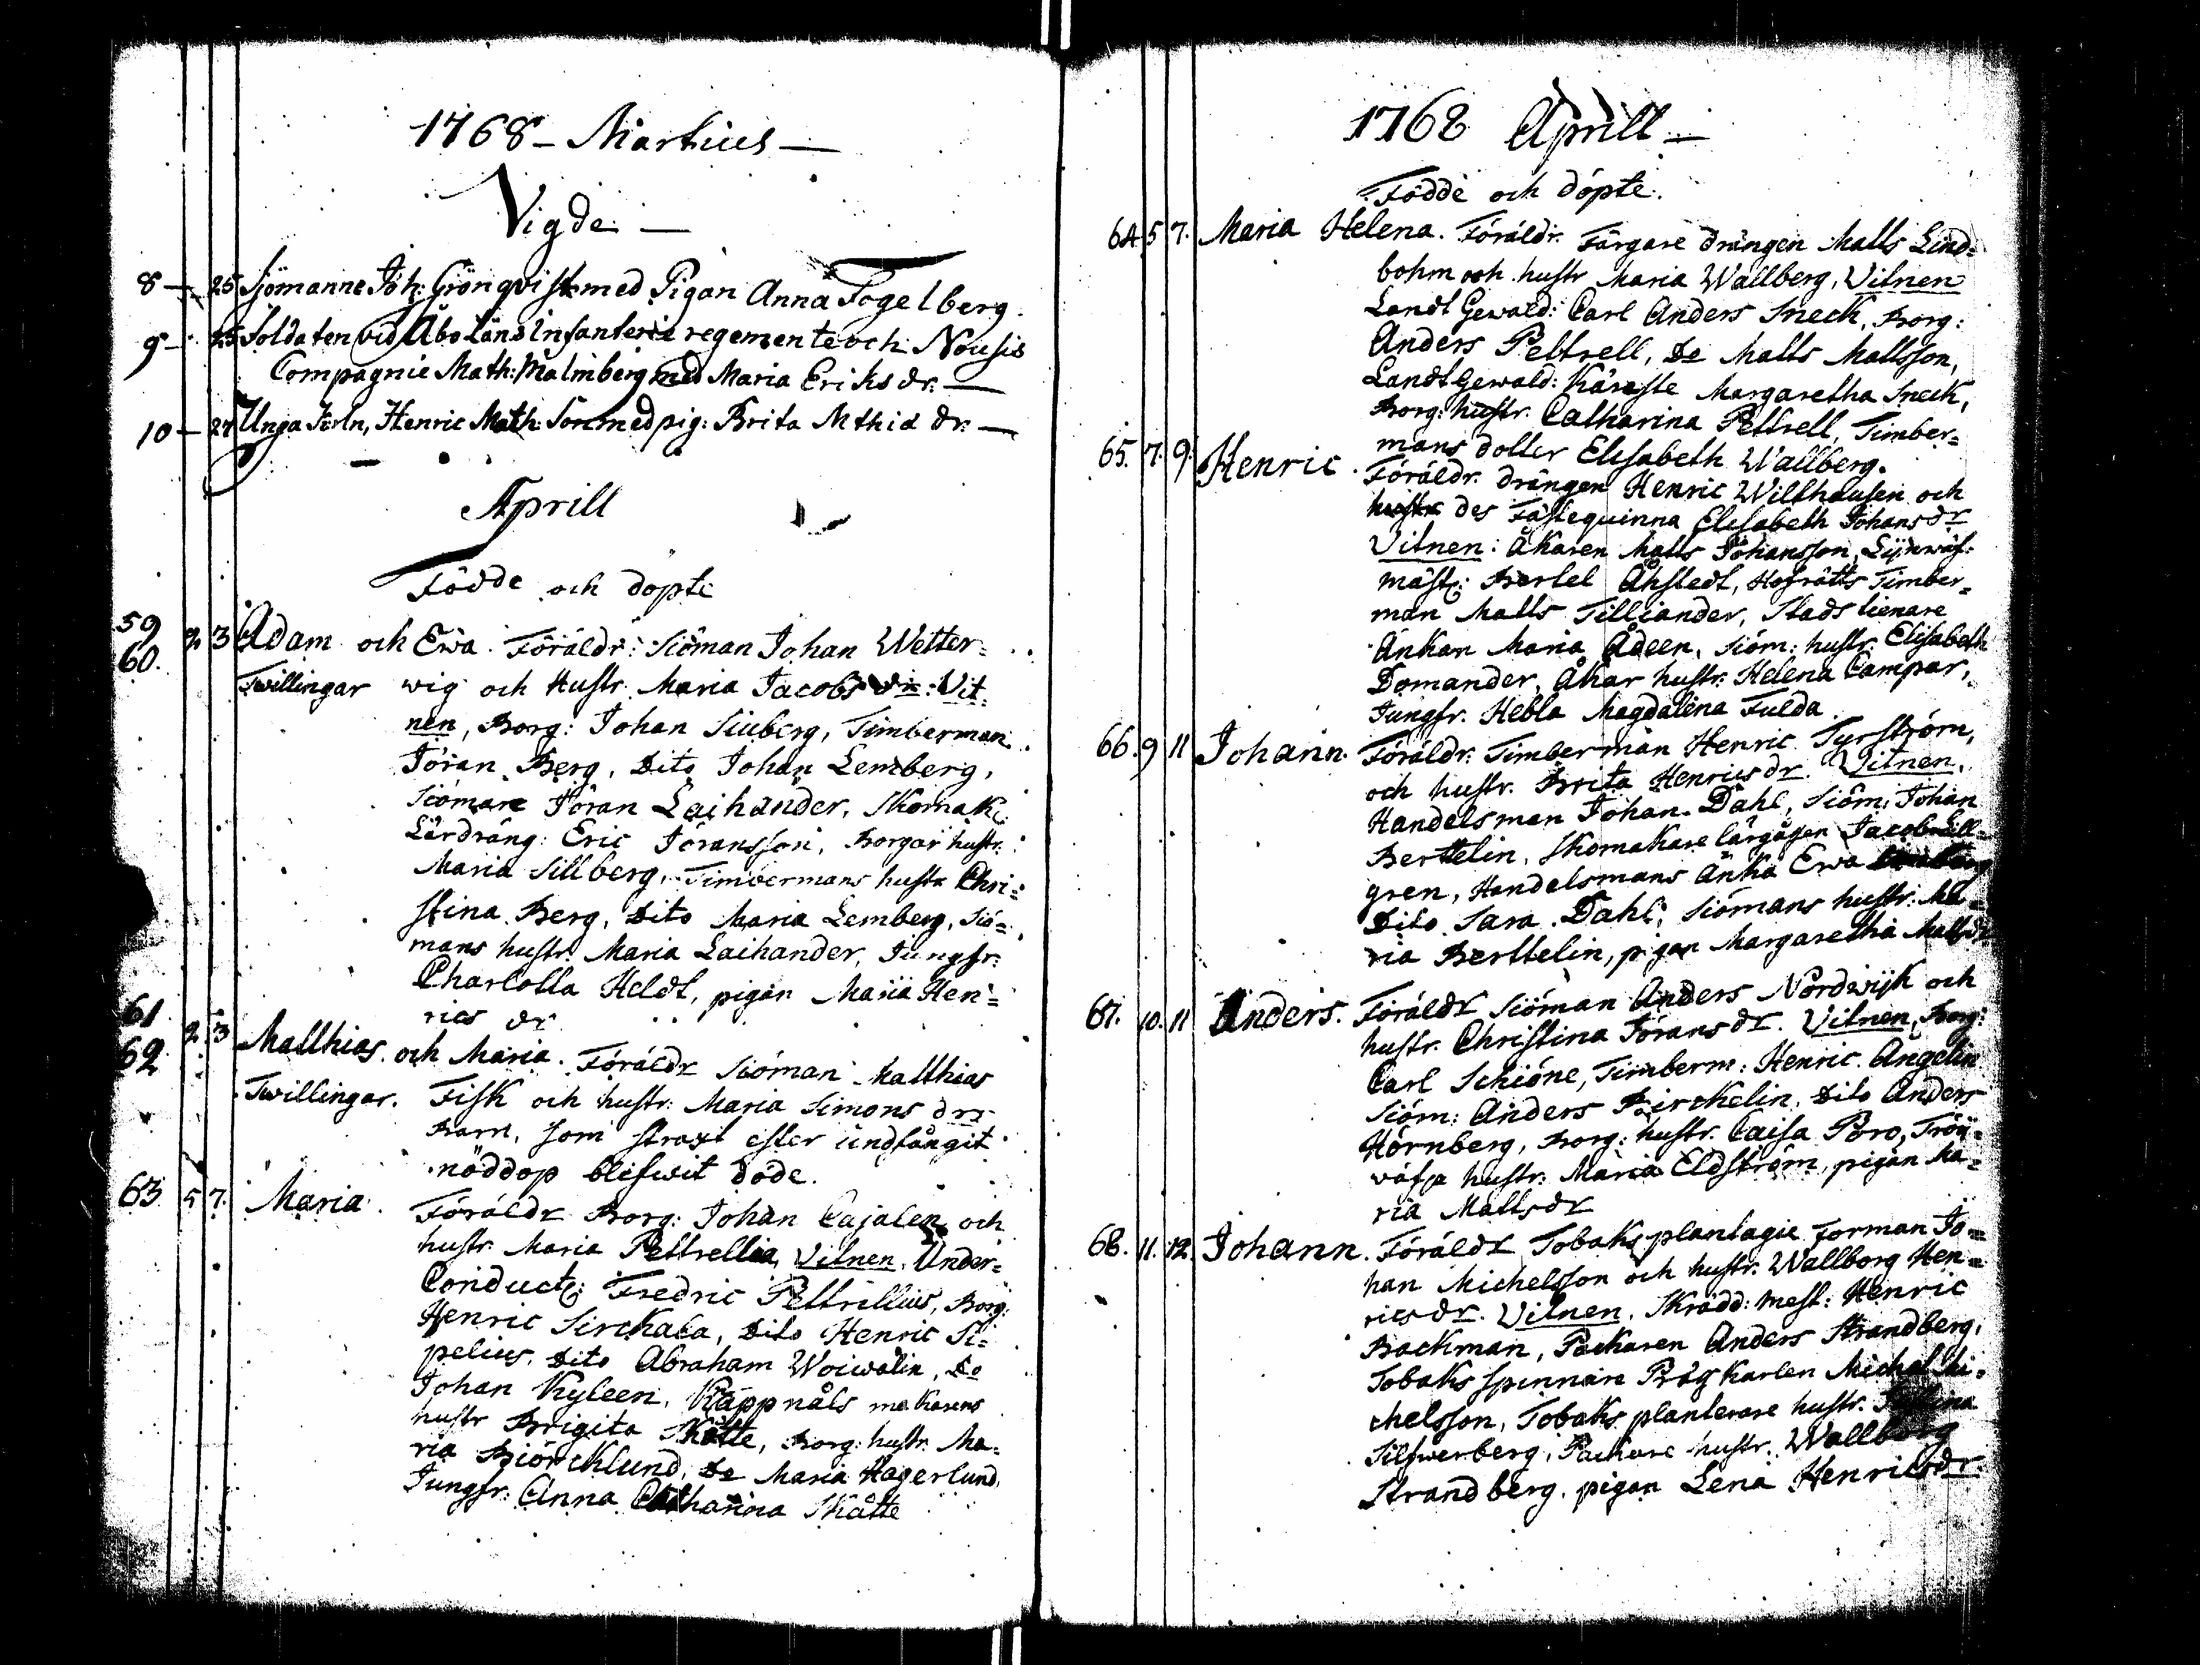 1768 - Martius -
Vigde -
8 - 25 Sjömanne Joh: Grönqvist med Pigan Anna Fogelberg.
9 - 25 Soldaten vid Åbo Läns Infanterie regemente och Nousis
Compagnie Math: Malmberg med Maria Eriks dr. -
10 - 27 Unga Karln, Henric Math: Son med pig: Brita Mthia dr. -
Aprill
Födde och döpte
59 60. 2 3 Adam och Ewa. Föräldr: Siöman Johan Wetter=
Twillingar wig och Hustr. Maria Jacobs dr: Vit
nen, Borg: Johan Siuberg, Timberman
Jöran Berg, Dito Johan Lemberg,
Siömare Jöran Laihander, Skomak:
Lärdräng: Eric Jöransson, Borgar hustr.
Maria Sillberg, Timbermans hustr Chri=
stina Berg, Dito Maria Lemberg, Siö=
mans hustr. Maria Laihander, Jungfr:
Charlotta Heldt, pigan Maria Hen=
rics dr
61 62 2 3 Matthias och Maria. Föräldr Siöman Matthias
Twillingar. Fisk och hustr: Maria Simons drs
Barn, som straxt efter undfångit
nöddop blefwit döde.
63 5 7. Maria. Föräldr Borg: Johan Cajalen och
hustr. Maria Pettrellia, Vitnen. Under=
Conduct: Fredric Pettrellius, Borg:
Henric Sirckala, Dito Henric Si=
pelius, Dito Abraham Woiwalin, Do
Johan Kyleen, Knappnåls makarens
hustr Brigita Skätte, Borg: hustr. Ma=
ria Biörcklund, Do Maria Hagerlund,
Jungfr: Anna Catharina Skätte
1768 Aprill -
Födde och döpte.
64 5 7. Maria Helena. Föräldr. Färgare drängen Matts Lind=
bohm och hustr Maria Wallberg, Vitnen
Landt Gewald: Carl Anders Sneck, Borg:
Anders Pettrell, Do Matts Mattsson,
Landt Gewald: Käreste Margaretha Sneck,
Borg: hustr. Catharina Pettrell, Timber=
mans dotter Elisabeth Wallberg.
65. 7. 9. Henric. Föräldr. drängen Henric Wilthausen och
des Fästequinna Elisabeth Johans dr
Vitnen: åkaren Matts Johansson, Lijnwäf:
mäst: Bertel Åhstedt, Hofrätts Timber=
man Matts Tilliander, Stads tienare
Änkan Maria Ådeen, Siöm: hustr. Elisabeth
Domander, åkar hustr. Helena Campar,
Jungfr. Hebla Magdalena Fulda.
66. 9 11 Johann. Föräldr. Timberman Henric Tyrström,
och hustr. Brita Henrics dr. Vitnen.
Handelsman Johan Dahl, Siöm: Johan
Bertelin, Skomakare lärgåsen Jacob Säll=
gren, Handelsmans Änka Ewa
Dito Sara Dahl, Siömans hustr. Ma=
ria Berttelin, pigan Margaretha Matts dr
67. 10. 11 Anders. Föräldr Siöman Anders Nordwijk och
hustr. Christina Jörans dr. Vitnen, Borg:
Carl Schiöne, Timberm: Henric Ängelin
Siöm: Anders Birckelin, Dito Anders
Hörnberg, Borg: hustr. Caisa Poro, Tröij=
wäfja hustr. Maria Eldström, pigan Ma=
ria Matts dr
68. 11. 12. Johann. Föräldr Tobaks plantagie Forman Jo=
han Michelsson och hustr. Wallborg Hen=
rics dr. Vitnen. Skrädd: mest: Henric
Backman, Packaren Anders Strandberg,
Tobaks spinnare Pråg Karlen Michel Mi=
chelsson, Tobaks planterare hustr.
Silfwerberg, Packare hustr. Wallborg
Strandberg, pigan Lena Henrics dr.